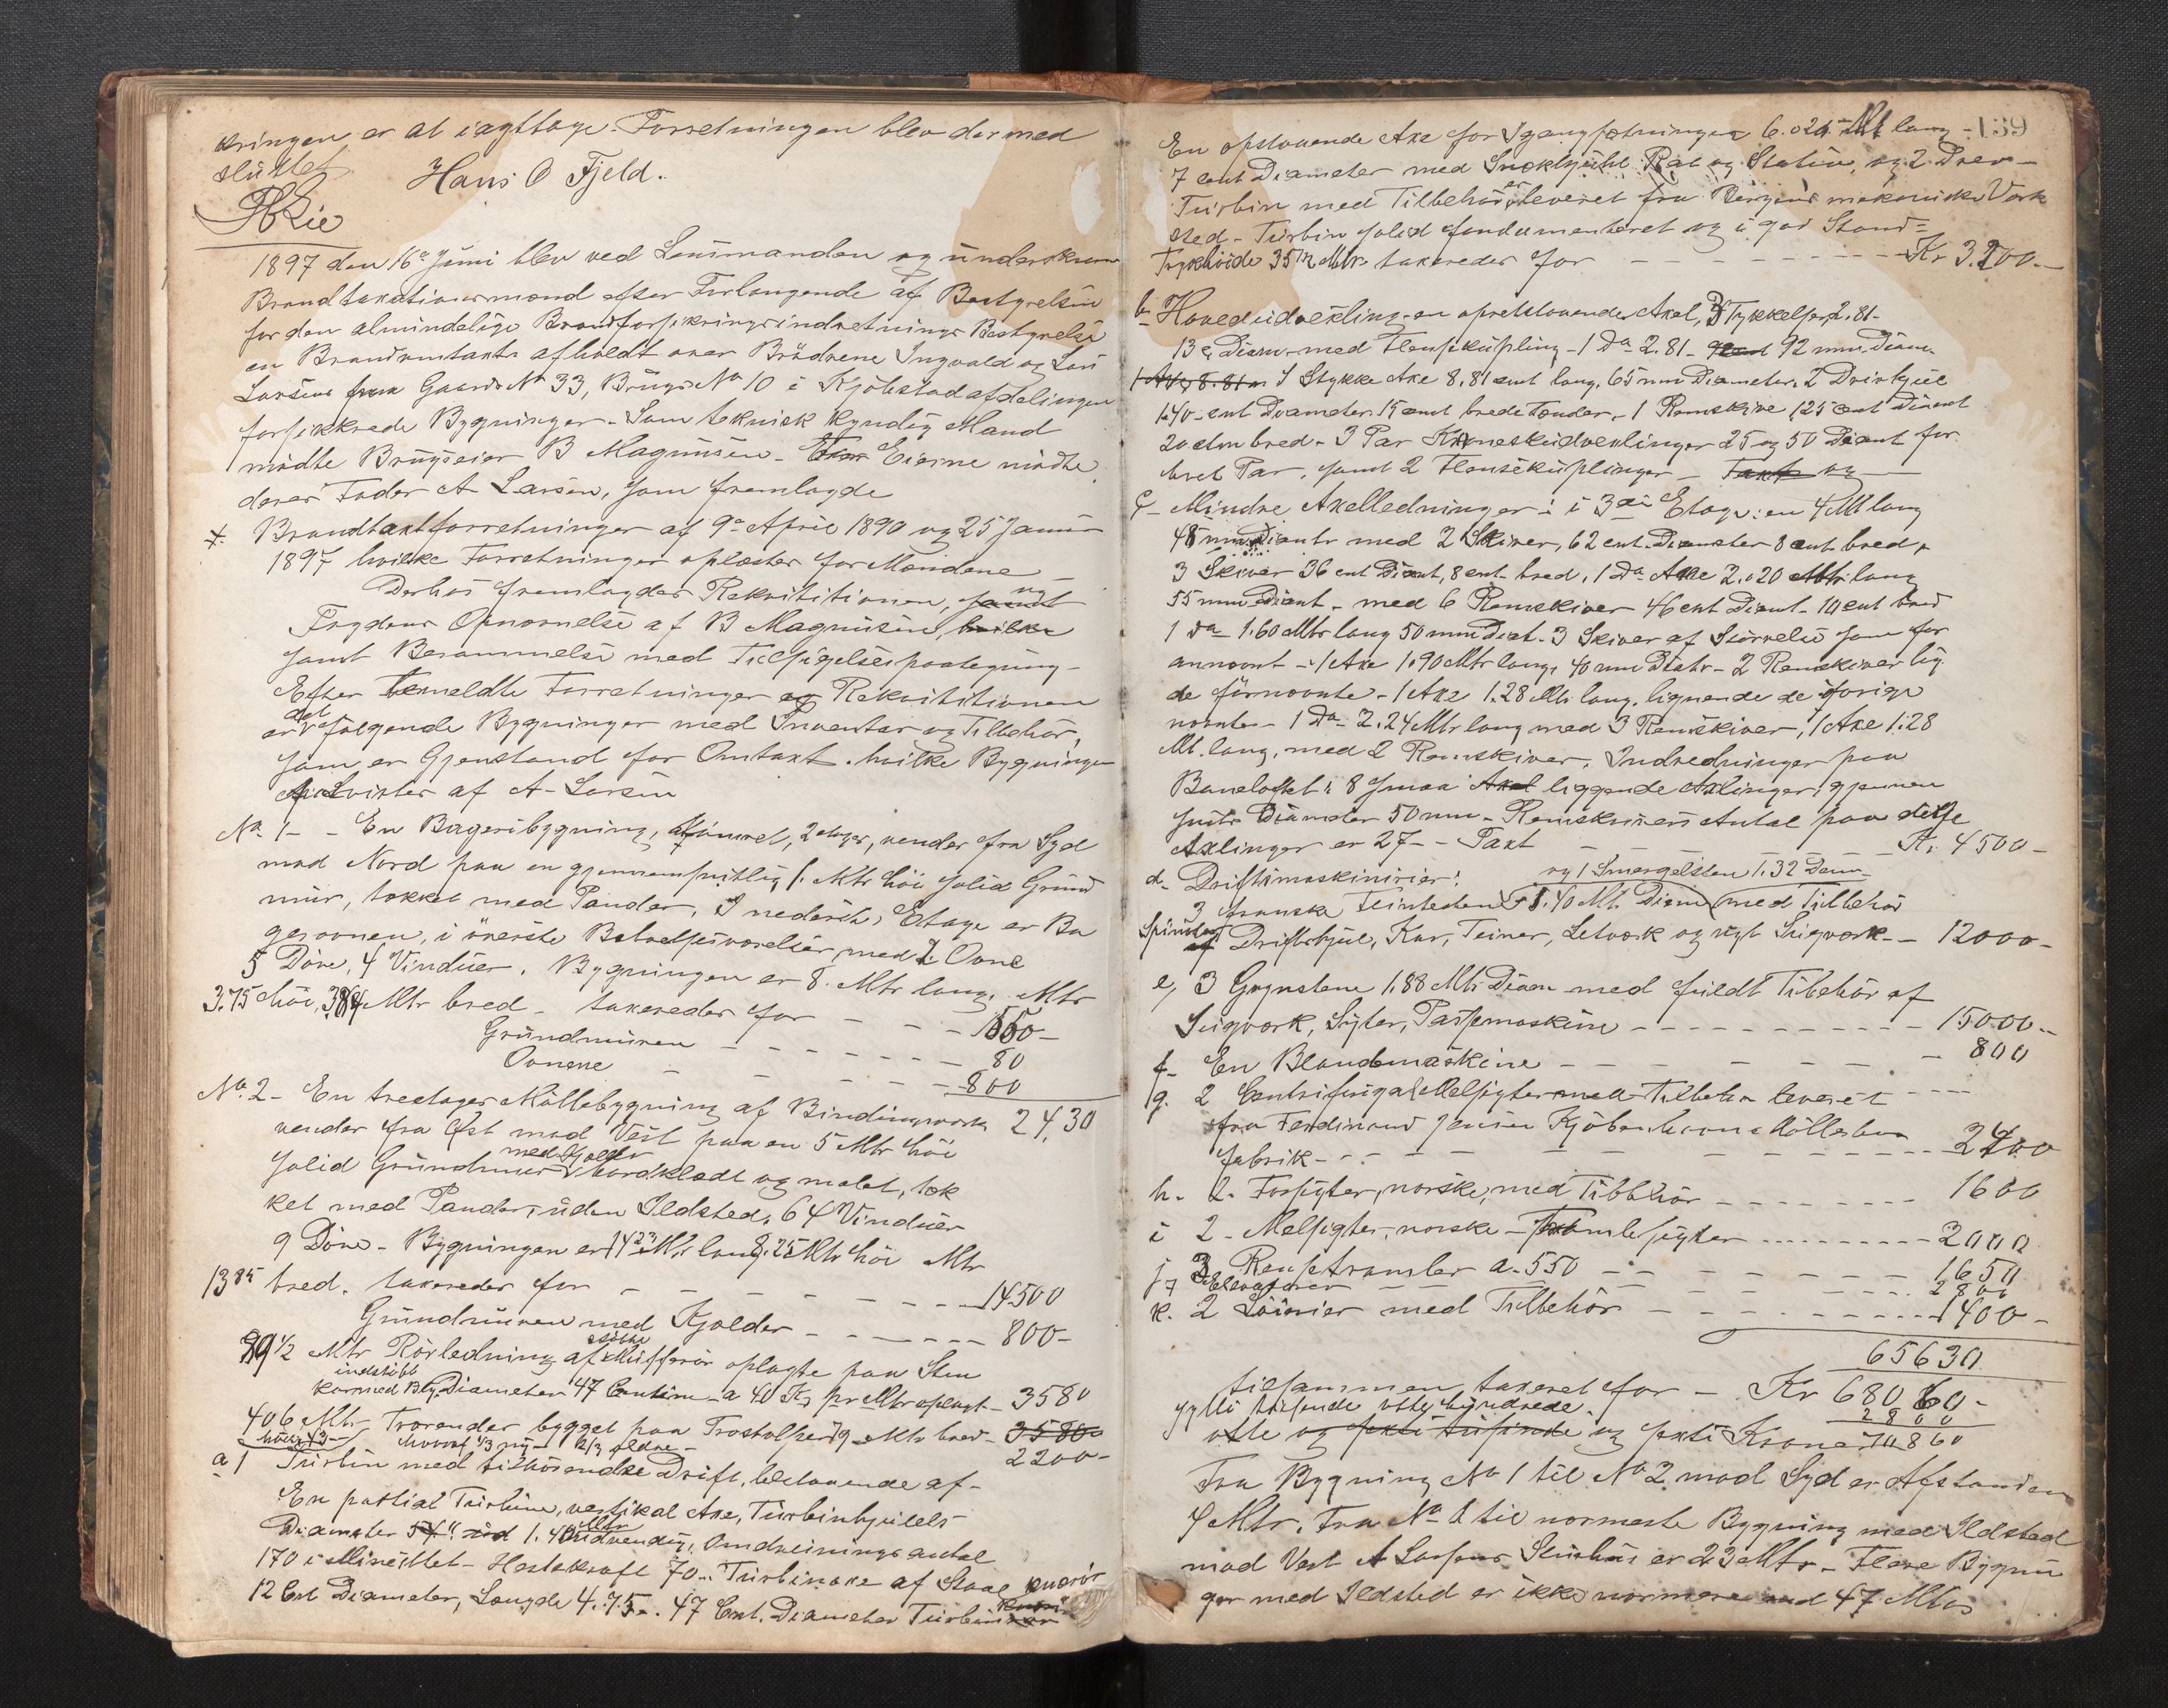 kringen er at iagttage. Forretningen blev dermed
sluttet
Hans O Fjeld.
1897 den 16e Juni blev ved Lensmanden og underskrevne
Brandtaxationsmænd efter Forlangende af Bestyrelsen
for den almindelige Brandforsikringsindretnings Bestyrelse
en Brandomtaxt afholdt over Brødrene Ingvald og
Larsens Gaards No 33, Brugs No 10 i Kjøbstadafdelingen
forsikkrede Bygninger. Som teknisk kyndig Mand
mødte Brugseier B Magnusen. Eierne mødte
deres Fader A Larsen, som fremlagde
Brandtaxtforretninger af 9e April 1890 og 25 Januar
1897 hvilke Forretninger oplæstes for Mændene
Derhos fremlagdes Rekvisitionen, samt
Fogdens Opnævnelse af B Magnusen, hvilke
samt Berammelse med Tilsigelsespaategning
Efter bemeldte Forretninger og Rekvisitionen
er det følgende Bygninger med Inventar og Tilbehør,
som er Gjenstand for Omtaxt. hvilke Bygninger
paavistes af A. Larsen
No. 1 - En Bageribygning, tømret, 2 etages, vender fra Syd
mod Nord paa en gjennemsnitlig 1. Mtr høi solid Grund
mur, tækket med Pander, I nederste Etage er Ba
gerovnen, i øverste Beboelsesværelser med 2 Ovne
5 Døre, 4 Vinduer. Bygningen er 8. Mtr lang, Mtr
3.75 høi, Mtr bred - taxeredes for - - - 1550 -
Grundmuren - - - 80
Ovnene - - - 800
24,30
No. 2 - En treetages Møllebygning af Bindingsværk
vender fra Øst mod Vest paa en 5 Mtr høi
solid Grundmur med Kjelder bordklædt og malet, tæk
ket med Pander, uden Ildsted, 64 Vinduer
9 Døre - Bygningen er 14 23 Mtr lang 8.25 Mtr høi Mtr
13 85 bred. taxeredes for - - - 14500
Grundmuren med Kjelder - - - 800 -
89 1/2 Mtr Rørledning af støbte Mufferør oplagte paa Sten
indstøbt
kar med Bly. Diameter 47 Centim a 40 Kr pr Mtr oplagt - 3580
406 Mtr Trærender bygget paa Træstolper, 9 Mtr bred - 3580
hvoraf 1/3 ny - 2/3 ældre - 2200 -
a 1 Turbin med tilhørende Drift, bestaaende af -
En partial Turbine, vertikal Axe, Turbinhjulets
Diameter 1.40 Mtr udvendig, Omdreiningsantal
170 i Minuttet - Hestekraft 70 - Turbinaxe af Staal
12 Cnt Diameter, Længde 4.75 - 47 Cent. Diameter Turbin knærør
139
En opstaaende Axe for Igangsætningen 6.02 Mt lang -
7 cent Diameter med Snekkehjul Rat og Stativ, og 2 Drev -
Turbin med Tilbehør er leveret fra Bergens mekaniske Værk
sted - Turbin solid fundamenteret og i god Stand =
Trykhøide 35 1/2 Mtr. taxeredes for - - - Kr 3.200. -
b Hovedudvexling - en opretstaaende Axel, 3 Tykkelser, 2.81 -
13 c Diam. med Flensekupling - 1 Do 2.81 - 92 mm Diam.
1 Stykke Axe 8.81 cmt lang, 65 mm Diameter, 2 Drivhjul
140 - cmt Diameter 15 cmt brede Tænder, - 1 Remskive 125 cent Diamt
20 ctm bred - 3 Par Koniskeudvexlinger 25 og 50 Diamt for
hvet Par, samt 2 Flensekuplinger - Taxt og
c - Mindre Axelledninger: i 3die Etage: en 4 Mt lang
48 mm Diamtr med 2 Skiver, 62 cent. Diameter 8 cent bred,
3 Skiver 36 cent Diamt, 8 cent bred, 1 Do Axe 2.20 Mtr lang
55 mm Diamt - med 6 Remskiver 46 cent Diamt - 10 cent bred
1 Do 1.60 Mtr lang 50 mm Diat. 3 Skiver af Størrelse som før
annævnt - 1 Axe 1.90 Mtr lang, 40 mm Diatr - 2 Remskiver lig
de førnævnte - 1 Axe 1.28 Mtr lang, lignende de forige
nævnte - 1 Do 2.24 Mtr lang med 3 Remskiver, 1 Axe 1.28
Mt. lang, med 2 Remskiver. Indredninger paa
8 smaa Axel liggende Axlinger, gjennem
snits Diameter 50 mm - Remskivers Antal paa disse
Axlinger er 27 - - Taxt - - - Kr. 4500 -
d. Driftsmaskinerier: og 1 Smergelsten 1.32 Diam
3 franske Flintesten 1.40 Mt Diam med Tilbehør
Spindler, Driftshjul, Kar, Teiner, Letværk og nyt Snigværk - - 12000 -
e, 3 Grynstene 1.88 Mtr Diam med fuldt Tilbehør af
Snigværk, Sigter, Pudsemaskine - - - 15000 -
f - En Blandemaskine - - - 800
g. 2 Centrifugal Melsigter med Tilbehør leveret
fra Ferdinand Jensen Kjøbenhavns Møllestens
fabrik - - - 2400
h. 2. Forsigter, norske, med Tilbehør - - - 1600
i 2 - Melsigter, norske - - - 2000
j 3 Rensetromler a. 550 - - - 1650
Elevatorer - - - 2800
k. 2 med Tilbehør - - - 1400 -
65630
tilsammen taxeret for - Kr 68060 -
2800
sytti tusinde otte hundrede
otte og seksti tusinde og seksti Kroner 70860
Fra Bygning No 1 til No 2 mod Syd er Afstanden
Mtr. Fra No 1 til nærmeste Bygning med Ildsted
mod Vest A Larsens er 23 Mtr - Flere Bygnin
ger med Ildsted er ikke nærmere end 47 Mtrs